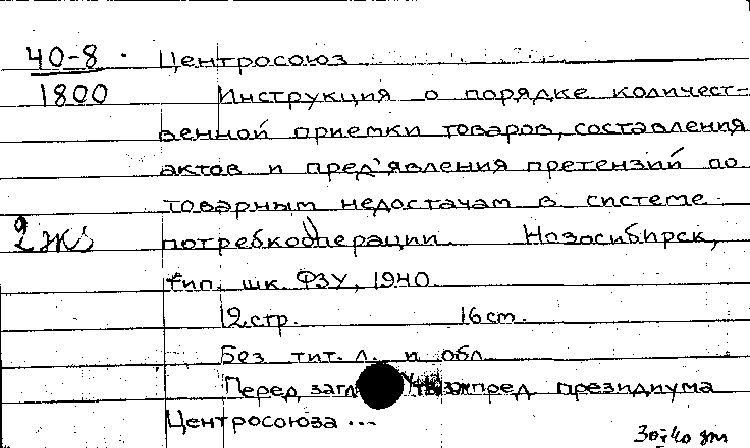 40-8 Центросоюз
1800 Инструкция о порядке количест-
венной приемки товаров, составления
актов и пред'явления претензий по
товарным недостачам в системе
потребкооперации. Новосибирск,
тип. шк. ФЗУ, 1940.
12 стр. 16 см.
Без тит. л. и обл.
Перед загл. пред президиума
Центросоюза ...